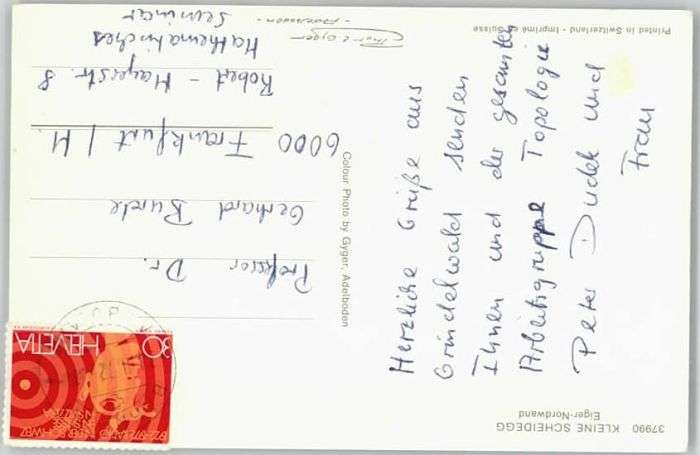 37990 KLEINE SCHEIDEGG
Eiger-Nordwand
Herzliche Grüße aus
Grindelwald senden
Ihnen und der gesamten
Arbeitsgruppe Topologie
Peter Dudek und
Frau
Printed in Switzerland - Imprimé en Suisse
Colour Photo by Gyger, Adelboden
HELVETIA 30
Professor Dr.
Gerhard Burde
6000 Frankfurt / M.
Robert-Mayerstr. 8
Mathematisches
Seminar